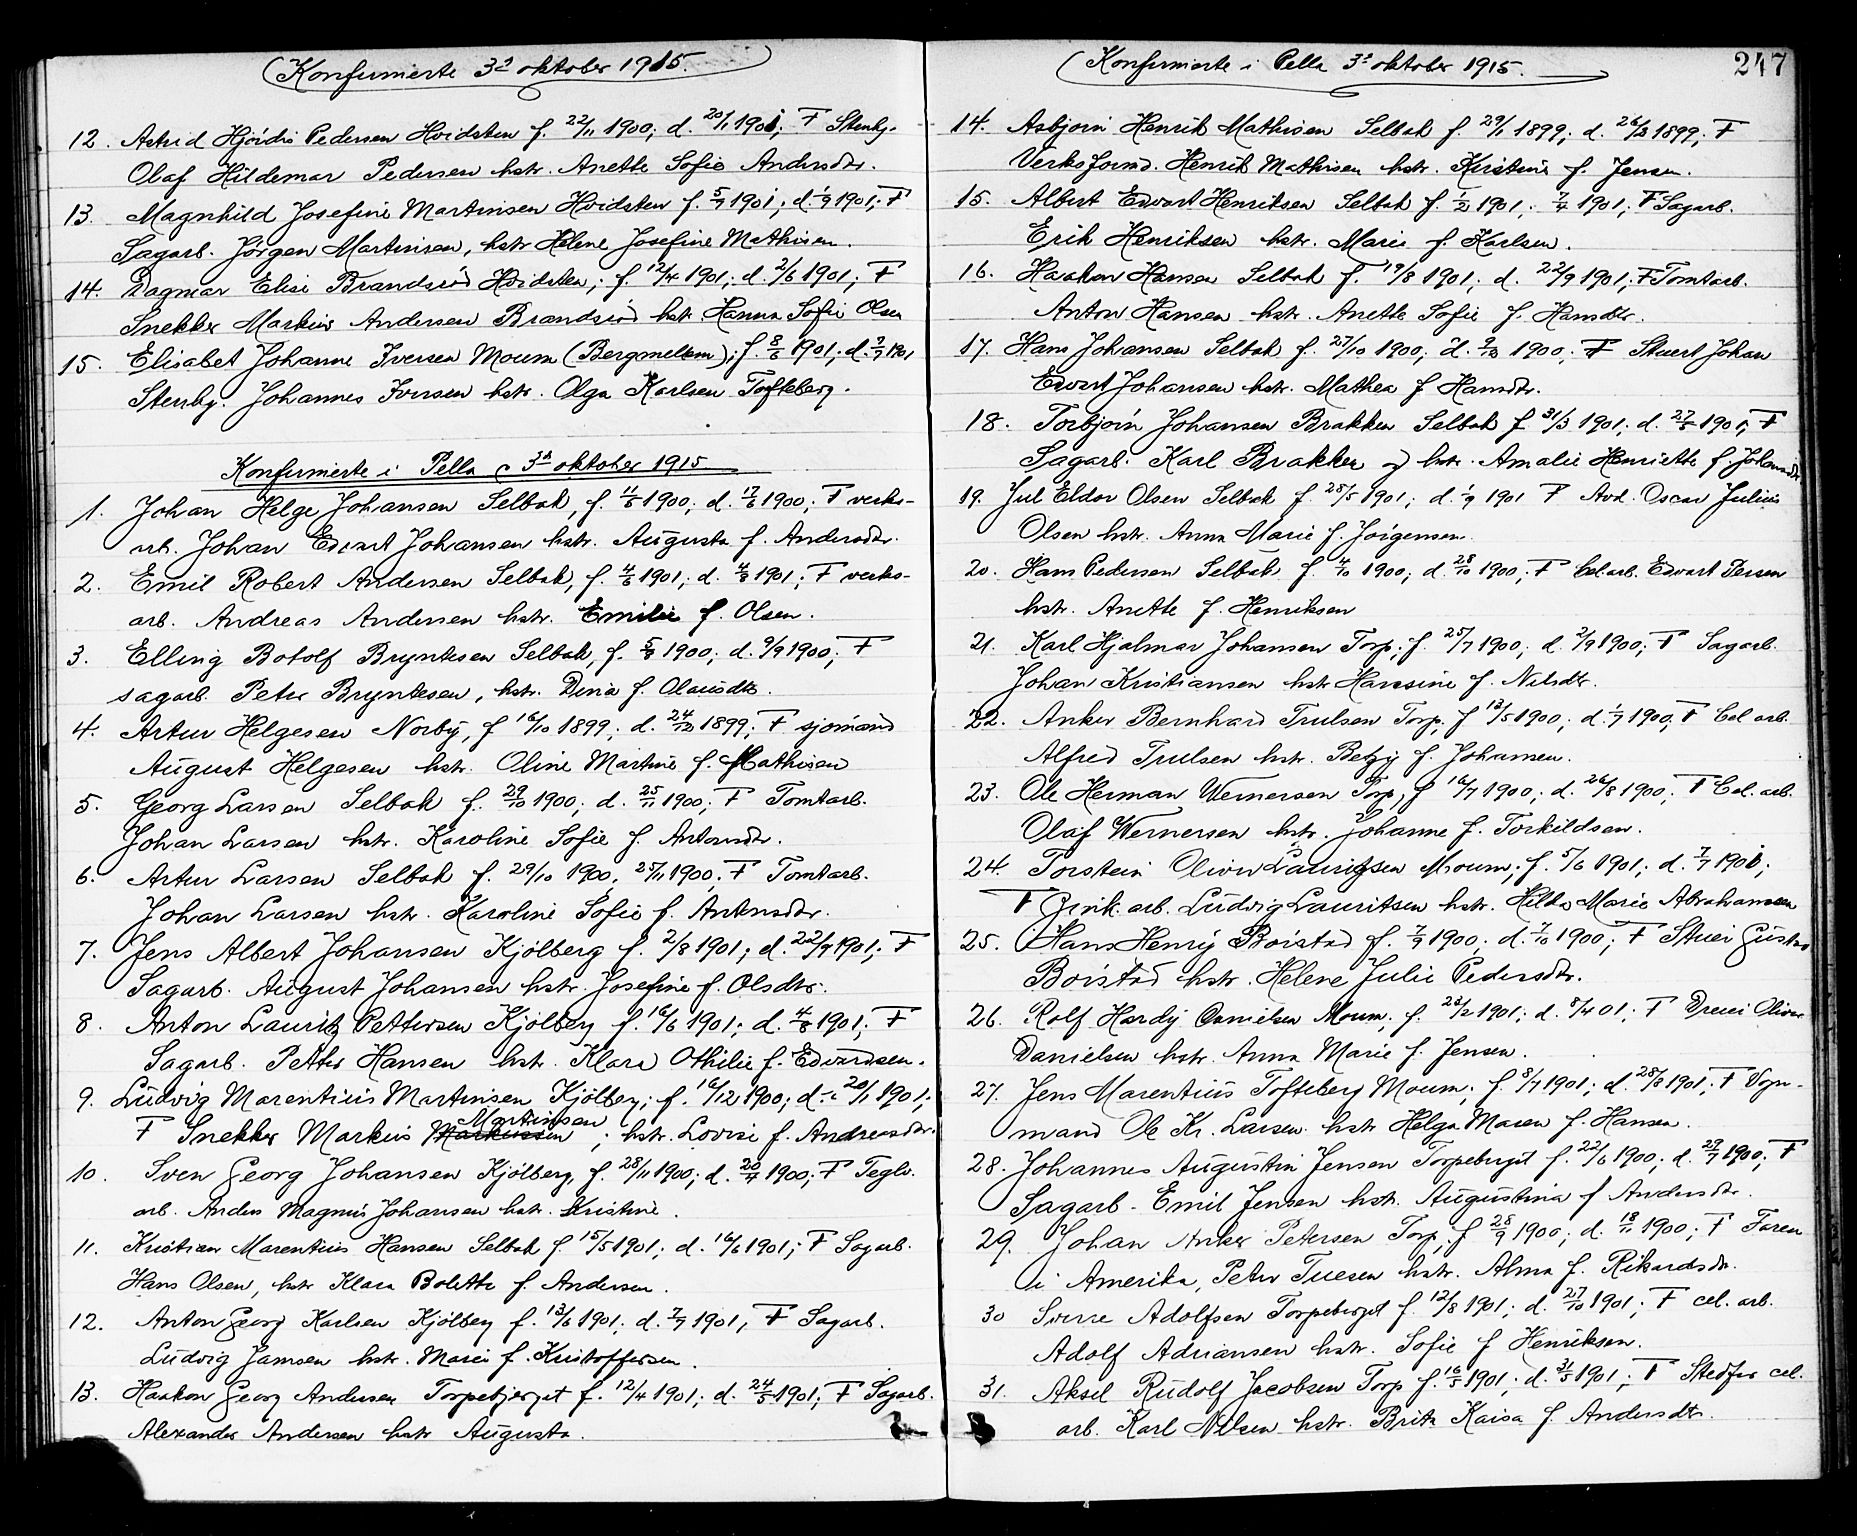 Konfirmerte 3d oktober 1915.
12. Astrid Hjördis Pedersen Hvidsten f. 22/11 1900; d. 20/1 1901; F Stenhj.
Olaf Hildemar Pedersen hstr. Anette Sofie Andersdtr.
13. Magnhild Josefine Martinsen Hvidsten f. 5/7 1901; d. 1/9 1901; F
Sagarb. Jörgen Martinsen, hstr Helene Josefine Mathisen.
14. Dagmar Elise Brandsröd Hvidsten; f. 12/4 1901; d. 2/6 1901; F
Snekker Markus Andersen Brandsröd hstr. Hanna Sofie Olsen
15. Elisabet Johanne Iversen Moum (Bergmellem); f. 8/6 1901; d. 7/7 1901
Stenhg. Johannes Iversen hstr. Olga Karlsen Tofteberg.
Konfirmerte i Pella 3d oktober 1915
1. Johan Helge Johansen Selbak, f. 11/5 1900; d. 17/6 1900; F verks-
arb. Johan Edvart Johansen hstr. Augusta f. Andersdtr.
2. Emil Robert Andersen Selbak, f. 4/6 1901; d. 4/8 1901; F verks-
arb. Andreas Andersen hstr. Emilie f. Olsen.
3. Elling Botolf Bryntesen Selbak, f. 5/8 1900; d. 9/9 1900; F
sagarb. Peter Bryntesen, hstr. Dina f. Olausdtr.
4. Artur Helgesen Norby, f 16/10 1899; d. 24/12 1899; F sjømand
August Helgesen hstr. Oline Martine f. Mathisen
5. Georg Larsen Selbak f. 29/10 1900; d. 25/11 1900; F Tomtarb.
Johan Larsen hstr. Karoline Sofie f. Antonsdtr.
6. Artur Larsen Selbak f. 29/10 1900, 25/11 1900; F Tomtarb.
Johan Larsen hstr. Karoline Sofie f. Antonsdtr.
7. Jens Albert Johansen Kjölberg f. 2/8 1901; d. 22/9 1901; F
Sagarb. August Johansen hstr. Josefine f. Olsdtr.
8. Anton Lauritz Pettersen Kjölberg f. 16/6 1901; d. 4/8 1901; F
Sagarb. Petter Hansen hstr. Klara Othilie f. Edvardsen.
9. Ludvig Marentius Martinsen Kjölberg; f. 16/12 1900; d. 20/1 1901;
Martinsen
F Snekker Markus Markussen; hstr. Lovise f. Andreasdtr.
10. Sven Georg Johansen Kjölberg, f. 28/11 1900; d. 1900; F Teglv.
arb. Anders Magnus Johansen hstr. Kristine.
11. Kristian Marentius Hansen Selbak f. 15/5 1901; d. 16/6 1901; F Sagarb.
Hans Olsen, hstr Klara Bolette f. Andersen.
12. Anton Georg Karlsen Kjölberg f. 13/6 1901; d. 7/7 1901, F Sagarb.
Ludvig Jansen hstr. Marie f. Kristoffersen.
13. Haakon Georg Andersen Torpebjerget f. 12/4 1901; d. 24/5 1901; F Sagarb.
Alexander Andersen hstr Augusta.
Konfirmerte i Pella 3d oktober 1915.
247
14. Asbjörn Henrik Mathisen Selbak f. 29/1 1899; d. 26/3 1899; F
Verksformd. Henrik Mathisen hstr. Kristine f. Jensen.
15. Albert Edvart Henriksen Selbak f. 1/2 1901; 7/4 1901; F Sagarb.
Erik Henriksen hstr. Marie f. Karlsen.
16. Haakon Hansen Selbak f. 19/8 1901; d. 22/9 1901; F Tomtarb.
Anton Hansen hstr. Anette Sofie f. Hansdtr.
17. Hans Johansen Selbak f. 27/10 1900; d. 1900; F Stuert Johan
Edvart Johansen hstr. Mathea f Hansdtr.
18. Torbjörn Johansen Brakken Selbak f 31/3 1901; d. 27/5 1901; F
Sagarb. Karl Brakken og hstr. Amalie Henriette f Johansdtr
19. Jul Eldor Olsen Selbak f. 28/5 1901; d. 1/9 1901 F Avd. Oscar Julius
Olsen hstr. Anna Marie f. Jörgensen.
20. Hans Pedersen Selbak f. 4/10 1900; d. 28/10 1900; F Cel.arb. Edvart Persen
hstr. Anette f. Henriksen
21. Karl Hjalmar Johansen Torp; f. 25/7 1900; d. 2/9 1900; F Sagarb.
Johan Kristiansen hstr Harasine f. Nilsdtr.
22. Anker Bernhard Trulsen Torp, f 13/5 1900; d. 1/7 1900; F Cel arb.
Alfred Trulsen hstr. Betzy f. Johansen.
23. Ole Herman Wernersen Torp, f 16/7 1900; d. 26/8 1900; F Cel. arb.
Olaf Wernersen hstr. Johanne f. Torkildsen.
24. Torstein Oliver Lauritzsen Moum; f. 5/6 1901; d. 7/7 1901;
F arb. Ludvig Lauritsen hstr. Hilda Marie Abrahamsen
25. Hans Henry Boistad f. 7/9 1900; d. 7/10 1900; F Stuer Gustav
Boistad hstr. Helene Julie Pedersdtr.
26. Rolf Hardy Danielsen Moum; f. 28/2 1901; d. 8/4 01; F Oliver
Danielsen hstr. Anna Marie f. Jensen.
27. Jens Marentius Tofteberg Moum; f. 8/7 1901; d. 28/8 1901; F Vogn-
mand Ole Kr. Larsen hstr Helga Maren f. Hansen.
28. Johannes Augustin Jensen Torpeberget f. 22/6 1900; d. 29/7 1900; F
Sagarb. Emil Jensen hstr. Augustina f Andersdtr.
29. Johan Anker Petersen Torp; f 28/9 1900; d. 18/11 1900; F Faren
i Amerika, Peter Tuesen hstr. Alma f. Rikardsdtr.
30 Sverre Adolfsen Torpeberget f. 12/8 1901; d. 27/10 1901; F cel. arb.
Adolf Adriansen hstr. Sofie f Henriksen.
31. Aksel Rudolf Jacobsen Torp f. 16/3 1901; d. 31/5 1901; F Stedfar cel.
arb. Karl Nilsen hstr. Brita Kaisa f Andersdtr.